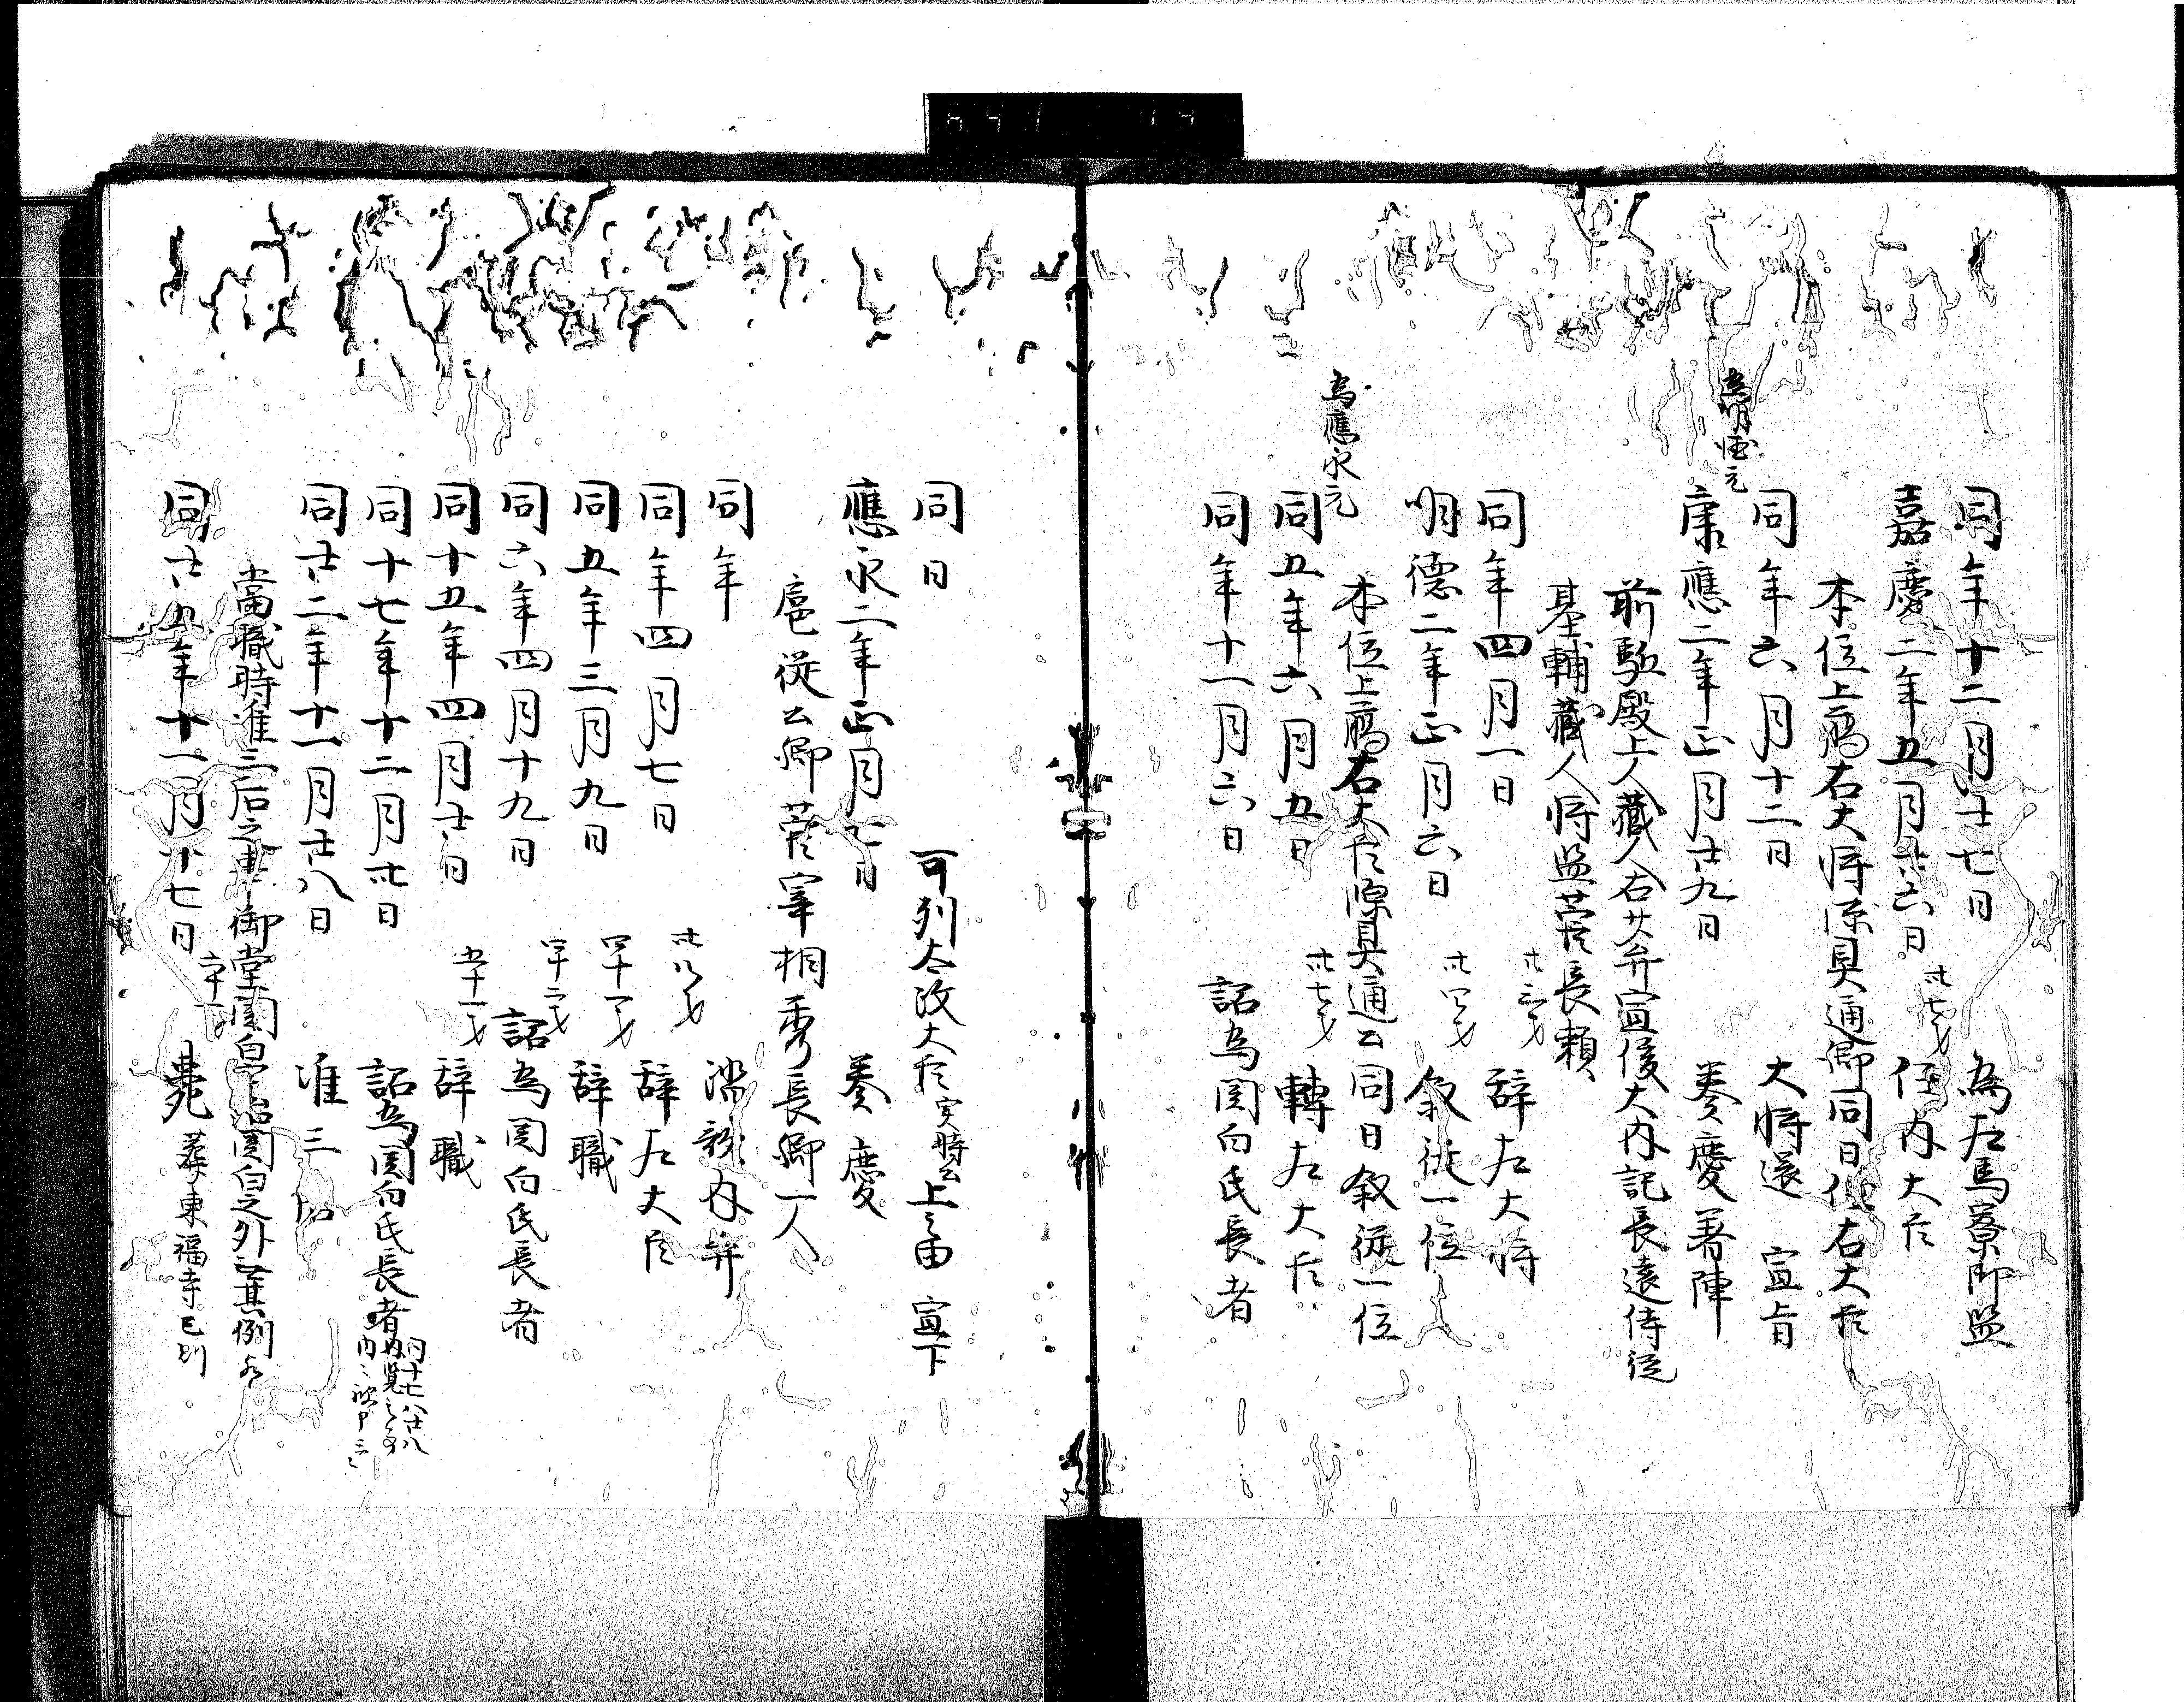 同年十二月廿七日 為左馬寮御監
嘉慶二年五月廿六日 任内大臣
本位上﨟右大将源具通卿同日任右大臣
同年六月十二日 大将還宣旨
為明徳元
康應二年正月廿九日 奏慶著陣
前駈殿上人藏人右少弁宣俊大内記長遠侍従
基輔藏人将監菅長頼
同年四月一日 卅三才 辞左大将
明德二年正月六日 卅四才 叙従一位
本位上﨟右大臣源具通公同日叙従一位
為應永元
同五年六月五日 卅七才 轉左大臣
同年十一月六日 詔為関白氏長者
同日 可列太政大臣實時公上之由宣下
應永二年正月七日 奏慶
扈従公卿菅宰相秀長卿一人
同年 內弁
同年四月七日 卅八才 辞左大臣
同五年三月九日 四十一才 辞職
同六年四月十九日 四十二才 詔為関白氏長者
同十五年四月廿日 五十一才 辞職
同十七年十二月卅日 詔為関白氏長者
同廿二年十一月廿八日 准三后
當職時准三后之事御堂関白 関白之外無其例
同廿五年十一月十七日 薨 葬東福寺